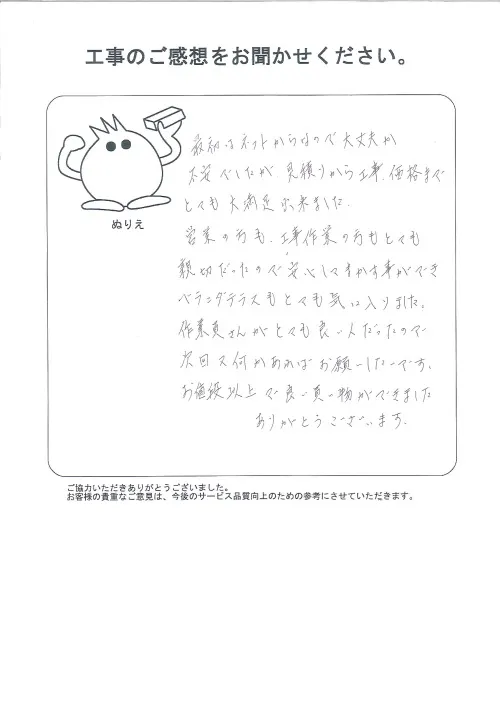 工事のご感想をお聞かせください。
ぬりえ
最初はネットからなので大丈夫か
不安でしたが見積りから工事、価格まで
とても大満足出来ました。
営業の方も、工事作業の方もとても
親切だったので安心してまかす事ができ
ベランダテラスもとても気に入りました。
作業員さんがとても良い人だったので
次回又何かあればお願いしたいです。
お値段以上で良い買い物ができました
ありがとうございます。
ご協力いただきありがとうございました。
お客様の貴重なご意見は、今後のサービス品質向上のための参考にさせていただきます。